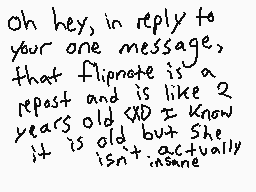 oh hey, in reply to
your one message,
that flipnote is a
repost and is like 2
years old <XD I know
it is old but she
isn't actually
insane